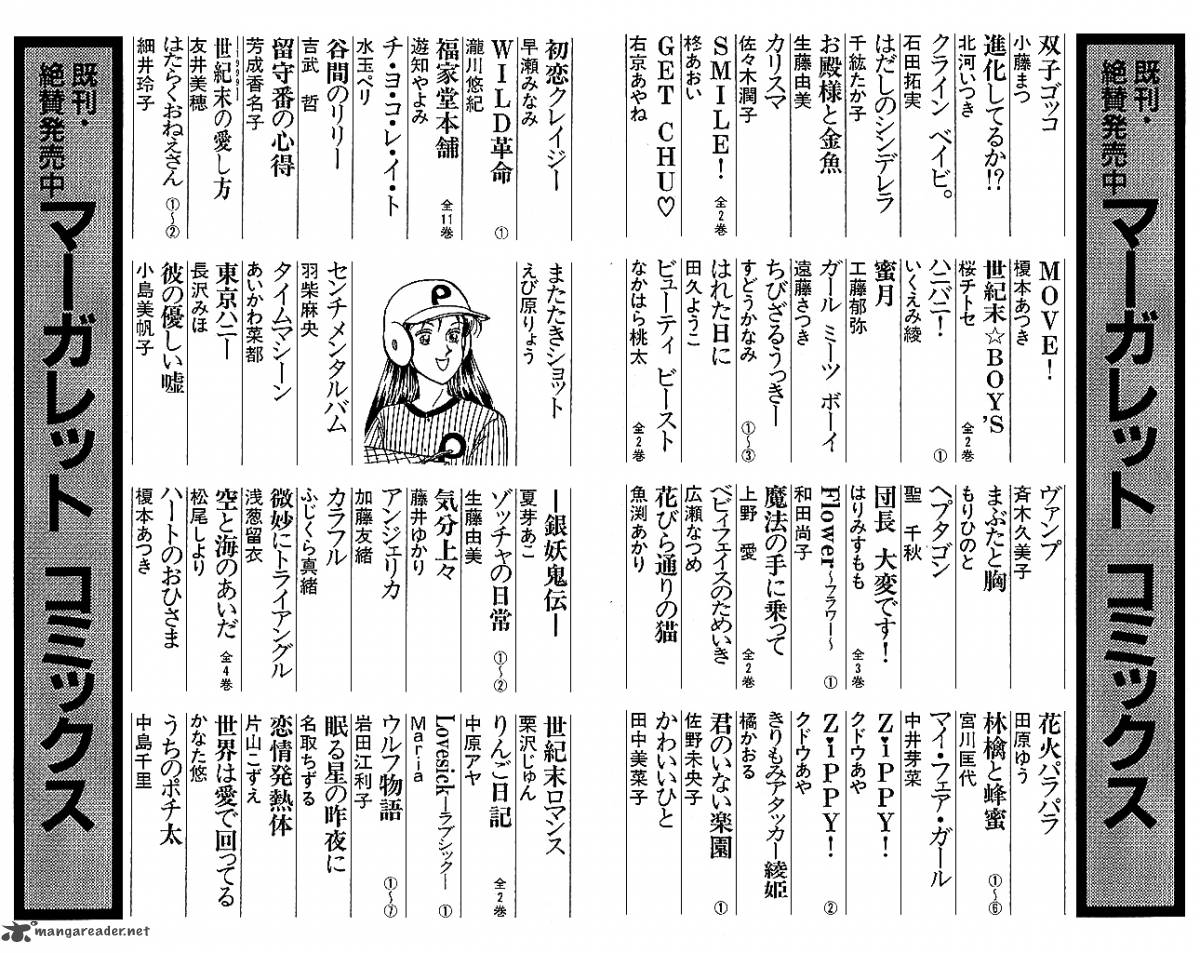 既刊・絶賛発売中
マーガレット コミックス
双子ゴッコ
小藤まつ
進化してるか!?
北河いつき
クライン ベイビ。
石田拓実
はだしのシンデレラ
千紘たか子
お殿様と金魚
生藤由美
カリスマ
佐々木潤子
SMILE! 全2巻
柊あおい
GET CHU♡
右京あやね
MOVE!
榎本あつき
世紀末☆BOY'S 全2巻
桜チトセ
ハニバニ! ①
いくえみ綾
蜜月
工藤郁弥
ガール ミーツ ボーイ
遠藤さつき
ちびざるうっきー ①〜③
すどうかなみ
はれた日に
田久ようこ
ビューティ ビースト 全2巻
なかはら桃太
ヴァンプ
斉木久美子
まぶたと胸
もりひのと
ヘプタゴン
聖 千秋
団長 大変です! 全3巻
はりみすもも
Flower〜フラワー〜 ①
和田尚子
魔法の手に乗って 全2巻
上野 愛
ベビィフェイスのためいき
広瀬なつめ
花びら通りの猫
魚渕あかり
花火パラパラ
田原ゆう
林檎と蜂蜜 ①〜⑥
宮川匡代
マイ・フェア・ガール
中井芽菜
Z・iPPY!
クドウあや
Z・iPPY! ②
クドウあや
きりもみアタッカー綾姫
橘かおる
君のいない楽園 ①
佐野未央子
かわいいひと
田中美菜子
初恋クレイジー
早瀬みなみ
WILD革命 ①
瀧川悠紀
福家堂本舗 全11巻
遊知やよみ
チ・ヨ・コ・レ・イ・ト
水玉ペリ
谷間のリリー
吉武 哲
留守番の心得
芳成香名子
世紀末の愛し方
友井美穂
はたらくおねえさん ①〜②
細井玲子
またたきショット
えび原りょう
P
P
センチメンタルバム
羽柴麻央
タイムマシーン
あいかわ菜都
東京ハニー
長沢みほ
彼の優しい嘘
小島美帆子
―銀妖鬼伝―
夏芽あこ
ゾッチャの日常 ①〜②
生藤由美
気分上々
藤井ゆかり
アンジェリカ
加藤友緒
カラフル
ふじくら真緒
微妙にトライアングル
浅葱留衣
空と海のあいだ 全4巻
松尾しより
ハートのおひさま
榎本あつき
世紀末ロマンス
栗沢じゅん
りんご日記 全2巻
中原アヤ
Lovesick―ラブシック― ①
Maria
ウルフ物語 ①〜⑦
岩田江利子
眠る星の昨夜に
名取ちずる
恋情発熱体
片山こずえ
世界は愛で回ってる
かなた悠
うちのポチ太
中島千里
既刊・絶賛発売中
マーガレット コミックス
mangareader.net